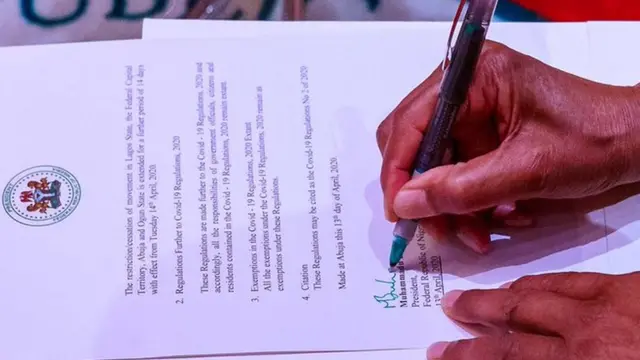 The restriction/cessation of movement in Lagos State, the Federal Capital
Territory, Abuja and Ogun State is extended for a further period of 14 days
with effect from Tuesday 14th April, 2020.
2. Regulations Further to Covid-19 Regulations, 2020
These Regulations are made further to the Covid - 19 Regulations, 2020 and
accordingly, all the responsibilities of government officials, citizens and
residents contained in the Covid - 19 Regulations, 2020 remain extant.
3. Exemptions in the Covid - 19 Regulations, 2020 Extant
All the exemptions under the Covid-19 Regulations, 2020 remain as
exemptions under these Regulations.
4. Citation
These Regulations may be cited as the Covid-19 Regulations No 2 of 2020.
Made at Abuja this 13th day of April, 2020.
Muhammadu
President,
Federal Republic of Nigeria
13th April, 2020